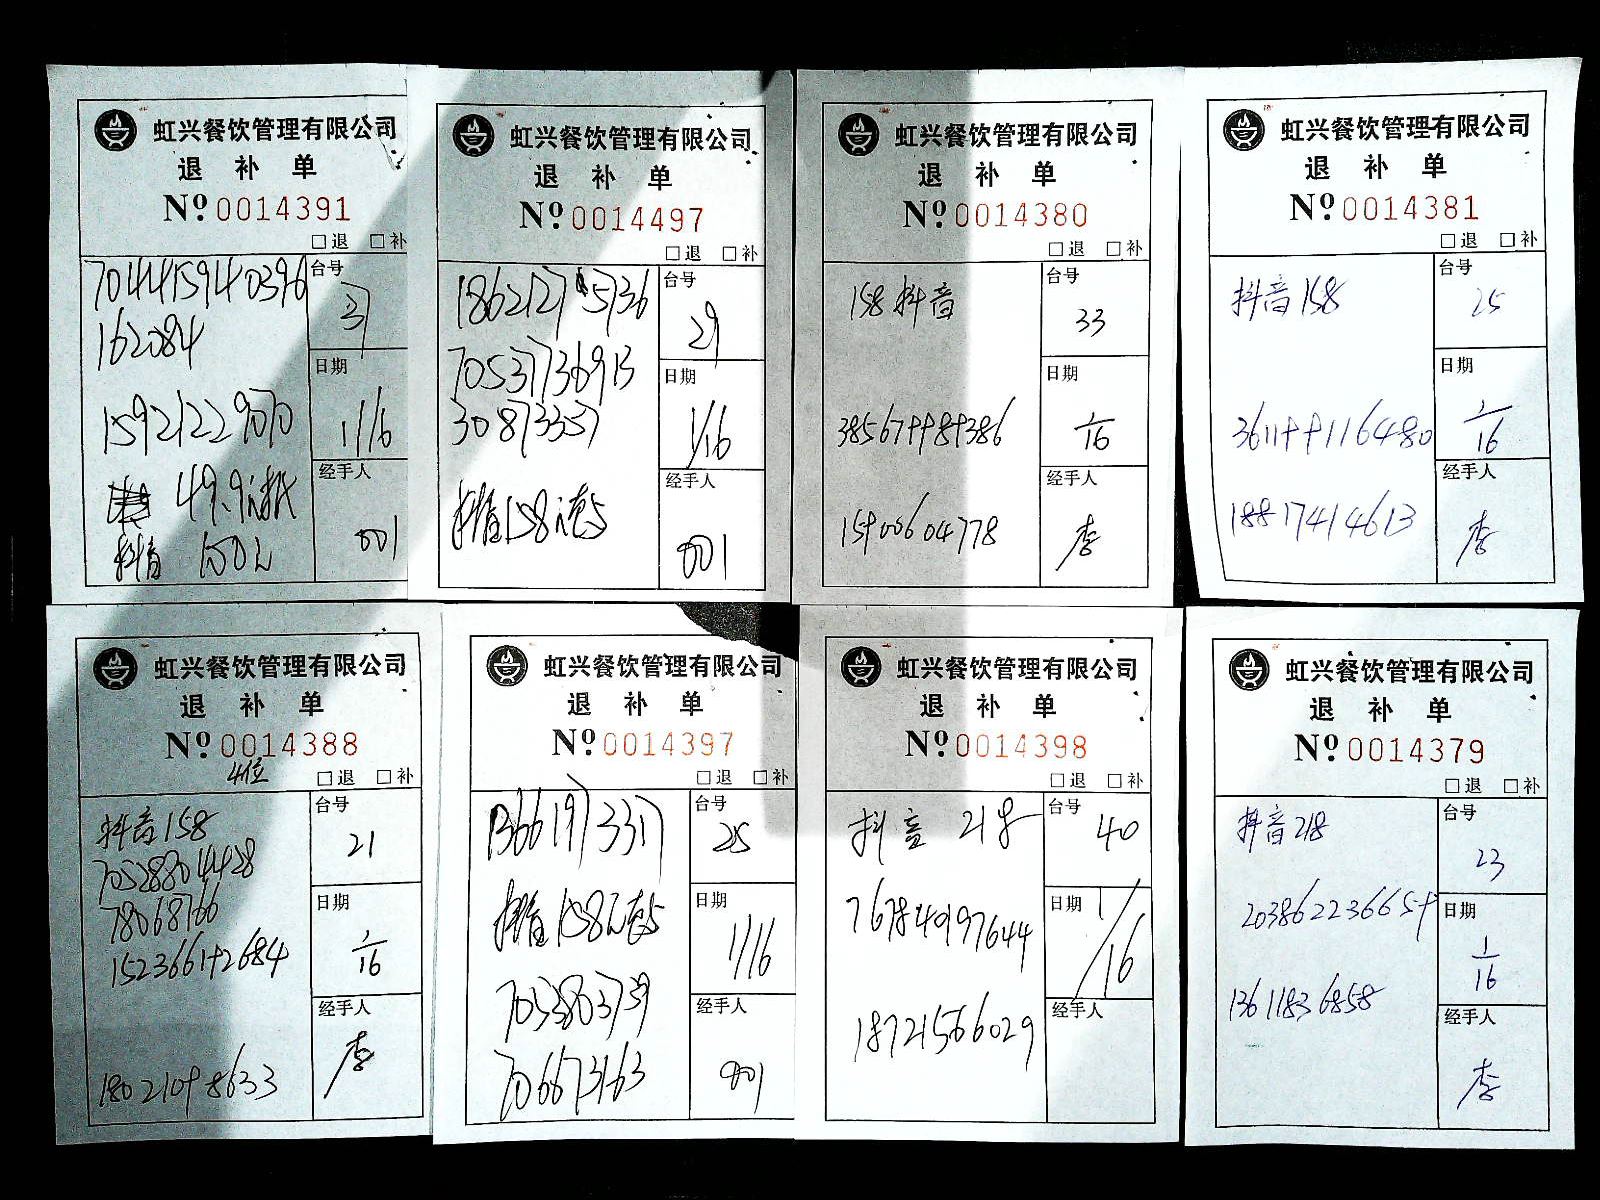 虹兴餐饮管理有限公司
退 补 单
Nº 0014391
□退 □补
70444159440396
162084
15921229070
49.9元抵
抖音 100元
台号
31
日期
1/16
经手人
001
虹兴餐饮管理有限公司
退 补 单
Nº 0014497
□退 □补
18621275736
70537736913
30873357
抖音158元套
台号
29
日期
1/16
经手人
001
虹兴餐饮管理有限公司
退 补 单
Nº 0014380
□退 □补
158抖音
385679989386
15900604778
台号
33
日期
1/16
经手人
李
虹兴餐饮管理有限公司
退 补 单
Nº 0014381
□退 □补
抖音158
361199116480
18817414613
台号
25
日期
1/16
经手人
李
虹兴餐饮管理有限公司
退 补 单
Nº 0014388
4位
□退 □补
抖音158
70528804428
78068766
15236692684
18021098633
台号
21
日期
1/16
经手人
李
虹兴餐饮管理有限公司
退 补 单
Nº 0014397
□退 □补
13661973317
抖音158元套
7053803739
706673163
台号
25
日期
1/16
经手人
001
虹兴餐饮管理有限公司
退 补 单
Nº 0014398
□退 □补
抖音 218
767849197644
18721566029
台号
40
日期
1/16
经手人
虹兴餐饮管理有限公司
退 补 单
Nº 0014379
□退 □补
抖音218
203862236659
13611836858
台号
23
日期
1/16
经手人
李